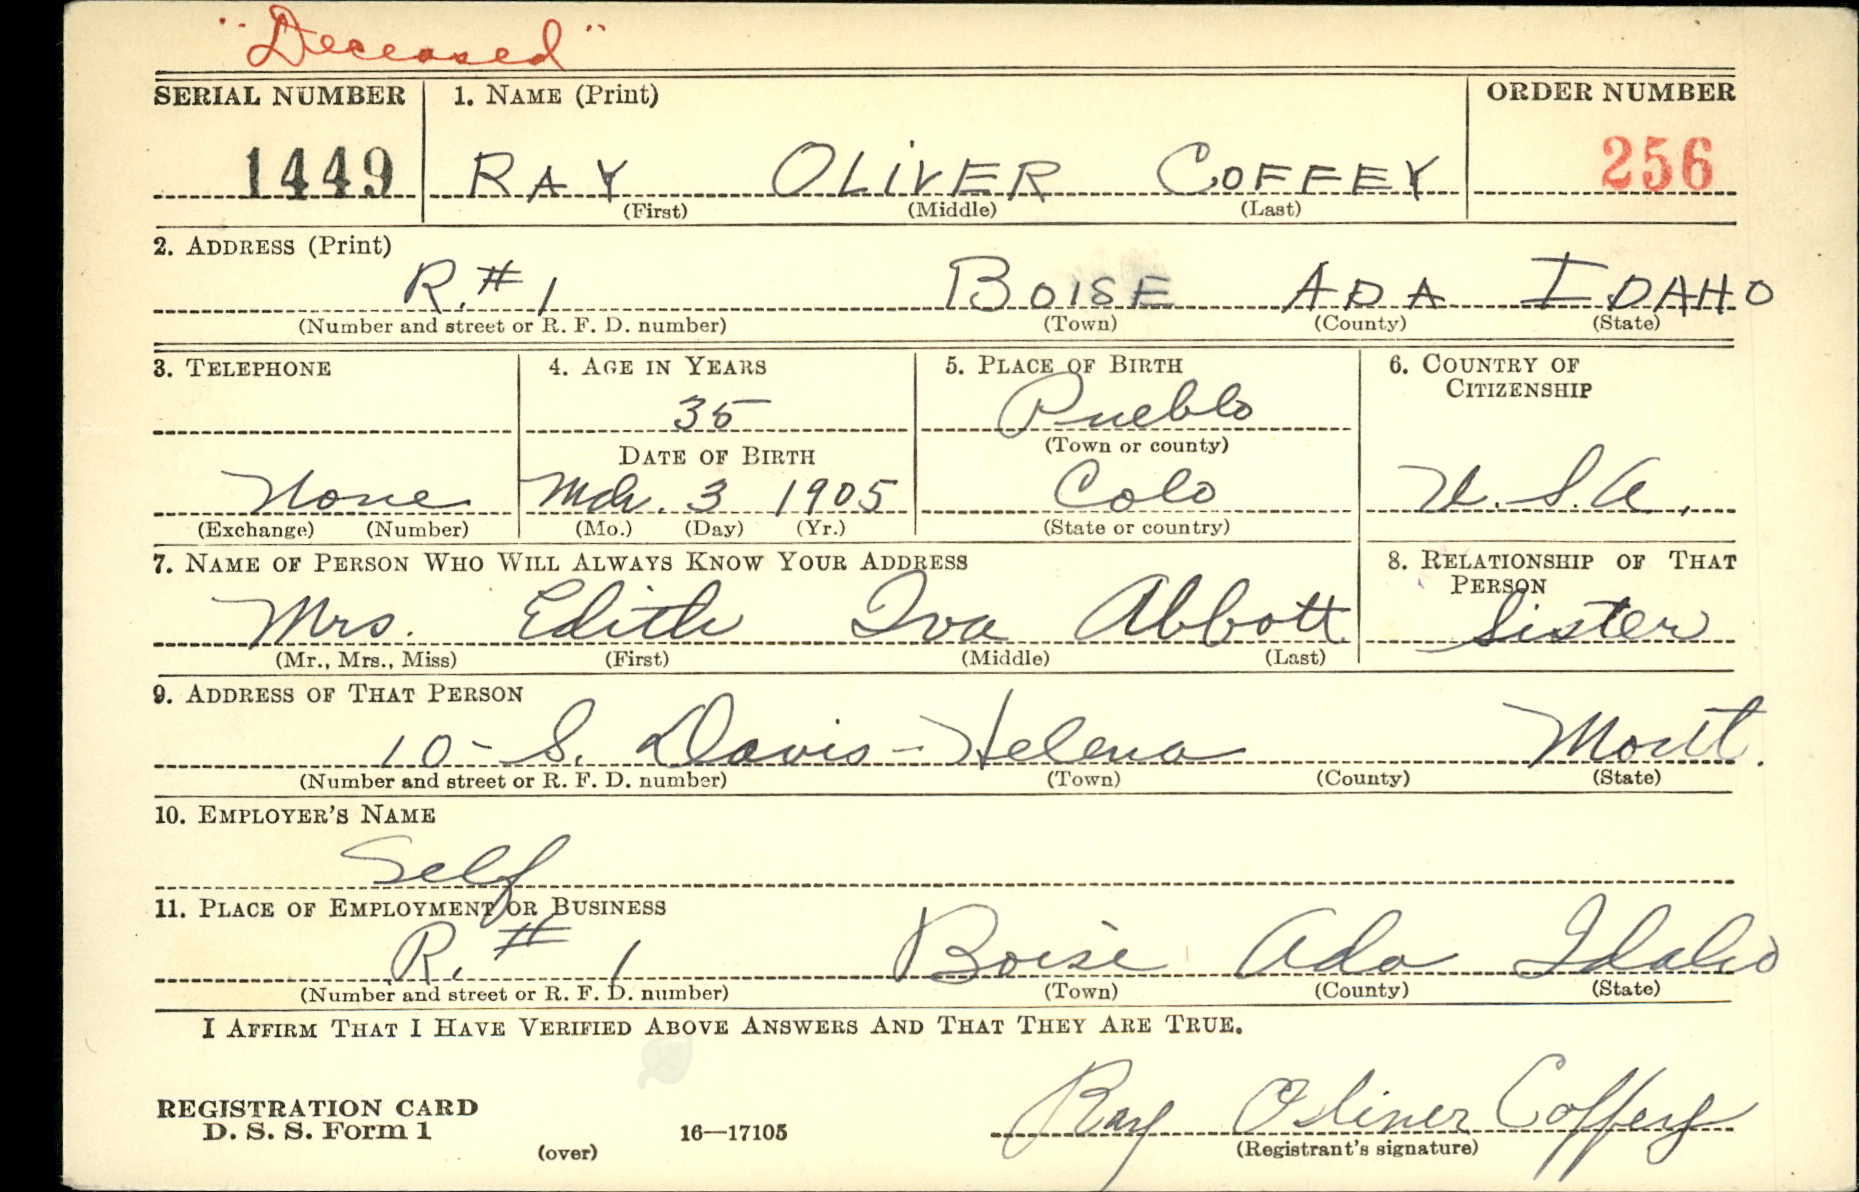 "Deceased"
SERIAL NUMBER 1. NAME (Print) ORDER NUMBER
1449 RAY OLIVER COFFEY 256
(First) (Middle) (Last)
2. ADDRESS (Print)
R. # 1 BOISE ADA IDAHO
(Number and street or R. F. D. number) (Town) (County) (State)
3. TELEPHONE 4. AGE IN YEARS 5. PLACE OF BIRTH 6. COUNTRY OF
CITIZENSHIP
35 Pueblo
DATE OF BIRTH (Town or county)
None Mch. 3 1905 Colo U.S.A.
(Exchange) (Number) (Mo.) (Day) (Yr.) (State or country)
7. NAME OF PERSON WHO WILL ALWAYS KNOW YOUR ADDRESS 8. RELATIONSHIP OF THAT
PERSON
Mrs. Edith Iva Abbott Sister
(Mr., Mrs., Miss) (First) (Middle) (Last)
9. ADDRESS OF THAT PERSON
10 - S. Davis - Helena Mont.
(Number and street or R. F. D. number) (Town) (County) (State)
10. EMPLOYER'S NAME
Self
11. PLACE OF EMPLOYMENT OR BUSINESS
R. # 1 Boise Ada Idaho
(Number and street or R. F. D. number) (Town) (County) (State)
I AFFIRM THAT I HAVE VERIFIED ABOVE ANSWERS AND THAT THEY ARE TRUE.
REGISTRATION CARD
D. S. S. Form 1 Ray Oliver Coffey
(over) 16—17105 (Registrant's signature)